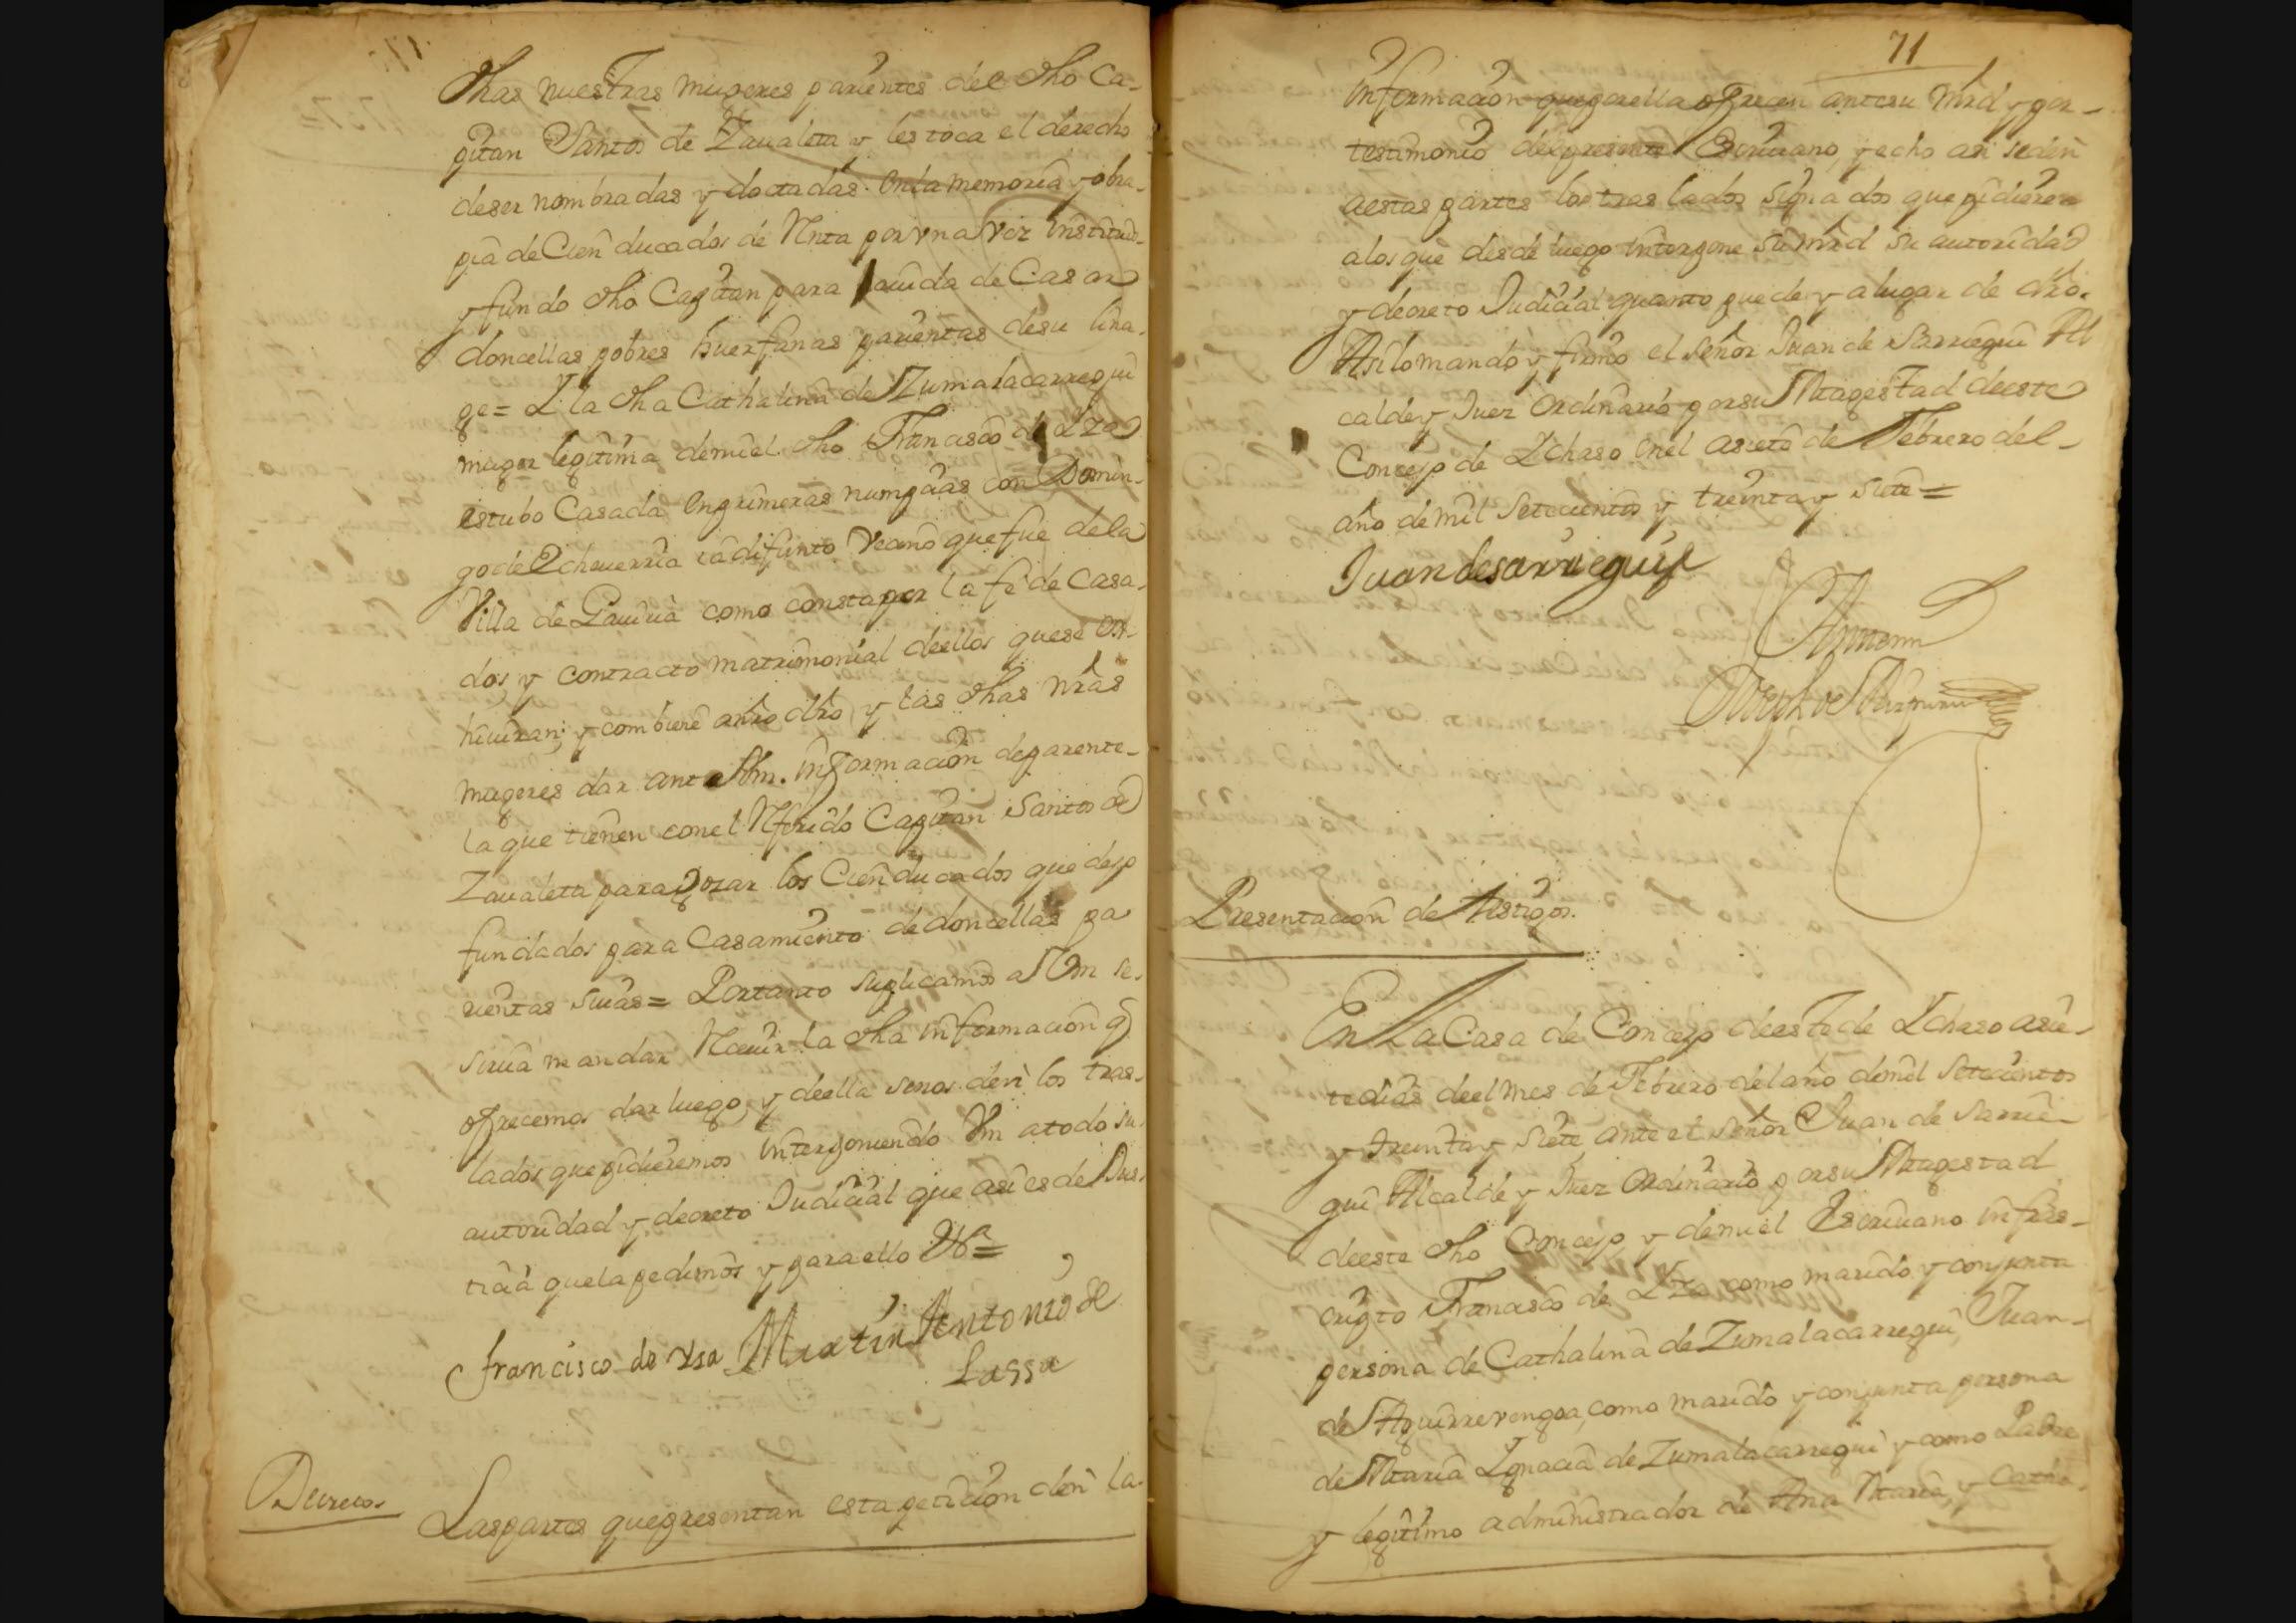 dhas nuestras mugeres parientes del dho Ca-
pitan Santos de Zaualeta y les toca el derecho
de ser nombradas y doctadas en la memoria y obra-
pia de Cien ducados de Renta por una vez instituio
y fundo dho Capitan para aiuda de Casar
doncellas pobres huerfanas parientas de su lina-
ge = Y la dha Cathalina de Zumalacarregui
muger legitima de mi el dho Francisco de Yza
estubo Casada en primeras numpcias con Domin-
go de Echeuerria ia difunto Vecino que fue de la
Villa de Gauiria como consta por la fe de Casa-
dos y contracto matrimonial de ellos que se ex-
hiuiran; y combiene a nro dro y las dhas nras
mugeres dar ante Vm. informacion de parente-
la que tienen con el Referido Capitan Santos de
Zaualeta para gozar los Cien ducados que dejo
fundados para Casamiento de doncellas pa
rientas suias = Por tanto suplicamos a Vm se
sirua mandar Reciuir la dha informacion q
ofrecemos dar luego, y de ella se nos den los tras-
lados que pidieremos interponiendo Vm a todo su
autoridad y decreto Judicial que asi es de Jus-
ticia que la pedimos y para ello &a =
francisco de Yza Martin Antonio de
Lassa
Decreto.
Las partes que presentan esta peticion den la
71
informacion que por ella ofrecen ante su mrd y por
testimonio del presente Escriuano, y echo asi se den
a estas partes los traslados signados que pidieren
a los que desde luego interpone su mrd su autoridad
y decreto Judicial quanto puede y a lugar de dro.
Asi lo mando y firmo el señor Juan de Sarriegui Al
calde y Juez Ordinario por su Magestad de este
Concejo de Ychaso en el a siete de Febrero del
año de mil setecientos y treinta y siete =
Juan de sarriegui
Ante mi
Joseph de
Presentacion de testigos.
En La Casa de Concejo de este de Ychaso a sie-
te dias de el mes de Febrero del año de mil setecientos
y treinta y siete ante el señor Juan de Sarrie-
gui Alcalde y Juez Ordinario por su Magestad
de este dho Concejo y de mi el Escriuano infras-
cripto Francisco de Yza como marido y conjunta
persona de Cathalina de Zumalacarregui, Juan
de Aguirrevengoa, como marido y conjunta persona
de Maria Ygnacia de Zumalacarregui y como Padre
y legitimo administrador de Ana Maria, y Catha-